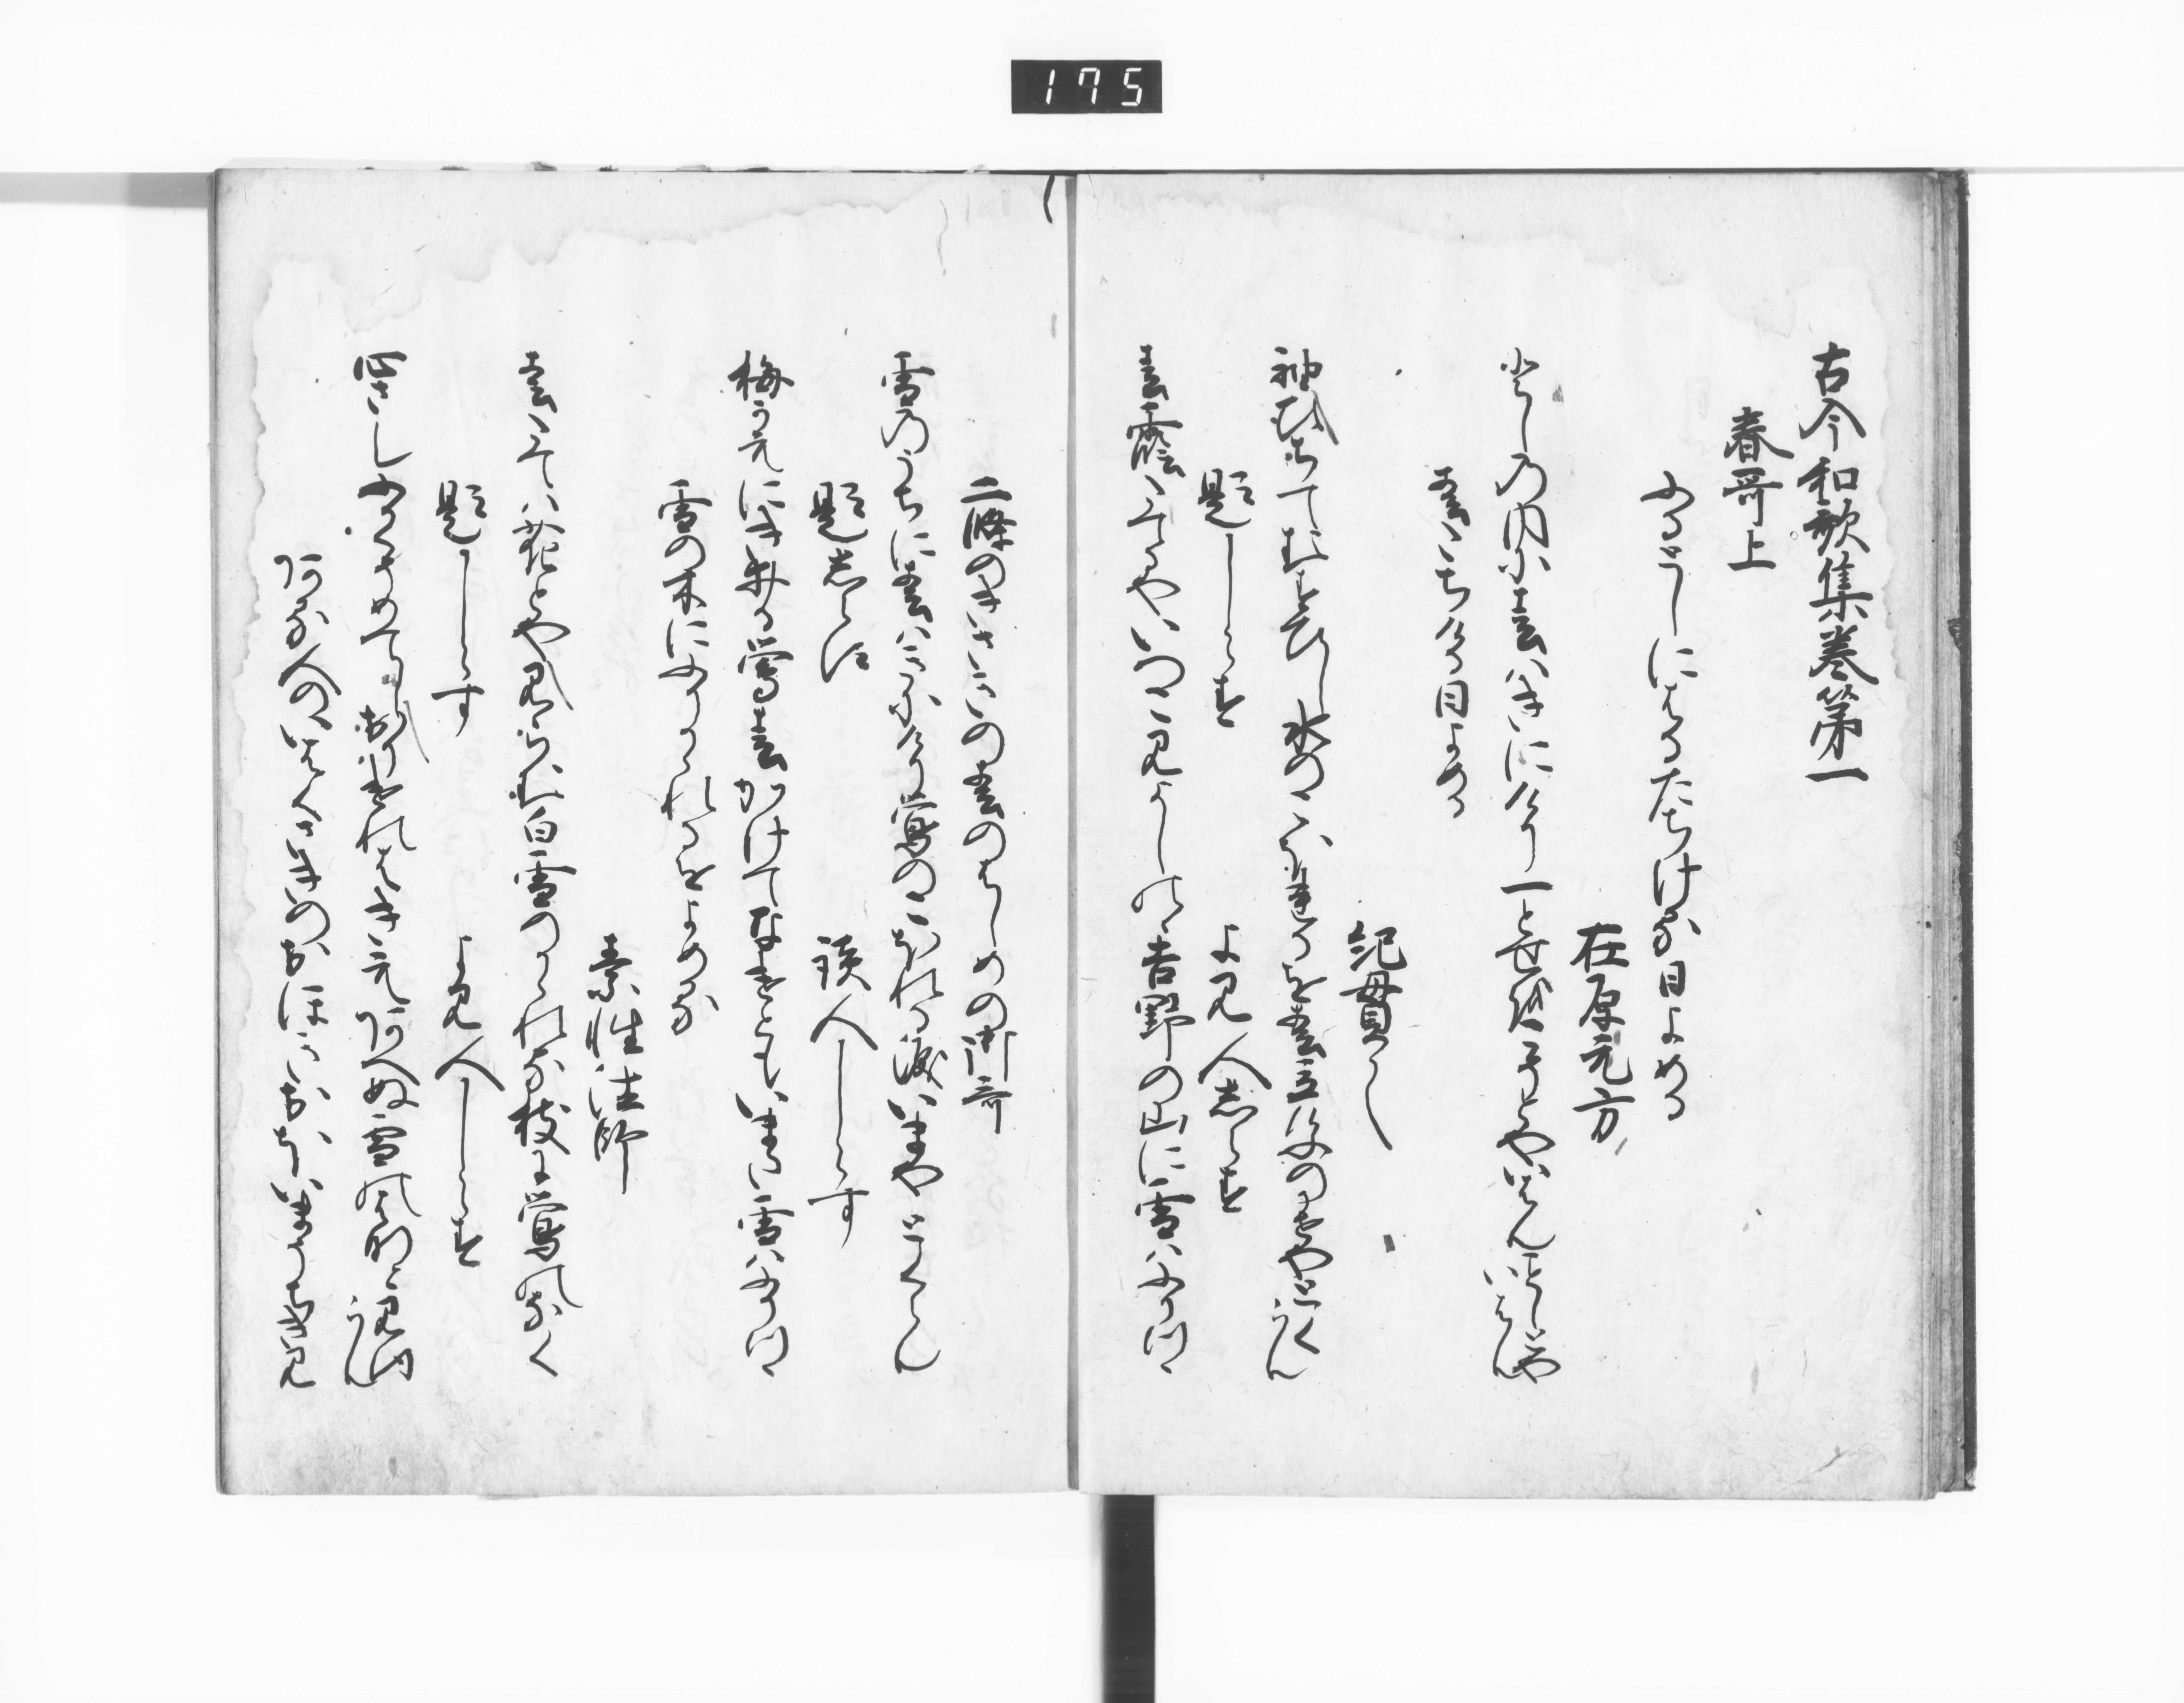 175
古今和歌集巻第一
春哥上
ふるとしにはる立ちける日よめる
在原元方
としの内に春はきにけり一とせをこそとやいはんことしとやいはん
春たちける日よめる
紀貫之
袖ひちてむすひし水のこほれるを春立けふの風やとくらん
題しらす
よみ人志らす
春霞たてるやいつこみよしのゝ吉野の山に雪はふりつゝ
二條のきさいの春のはしめの御哥
雪のうちに春はきにけり鶯のこほれる涙いまやとくらむ
題志らす
読人しらす
梅かえにきゐる鶯春かけてなけともいまた雪はふりつゝ
雪の木にふりかゝれるをよめる
素性法師
春たては花とや見らむ白雪のかゝれる枝に鶯のなく
題しらす
よみ人しらす
心さしふかくそめてしおりけれはきえあへぬ雪の花とみゆらん
ある人のいはくさきのおほきおほいまうちきみ